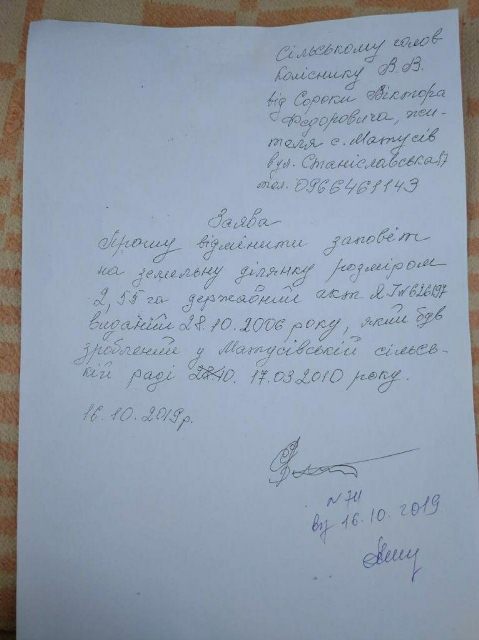 Сільському голов
Коліснику В.В.
від Сороки Віктора
Федоровича, жи-
теля с. Матусів
вул. Станіславська 57
тел. 0966461143
Заява
Прошу відмінити заповіт
на земельну ділянку розміром
2,55 га державний акт ЯЛ №626197
виданий 28.10.2006 року, який був
зроблений у Матусівській сільсь-
кій раді 17.03.2010 року.
16.10.2019р.
N 711
від 16.10.2019